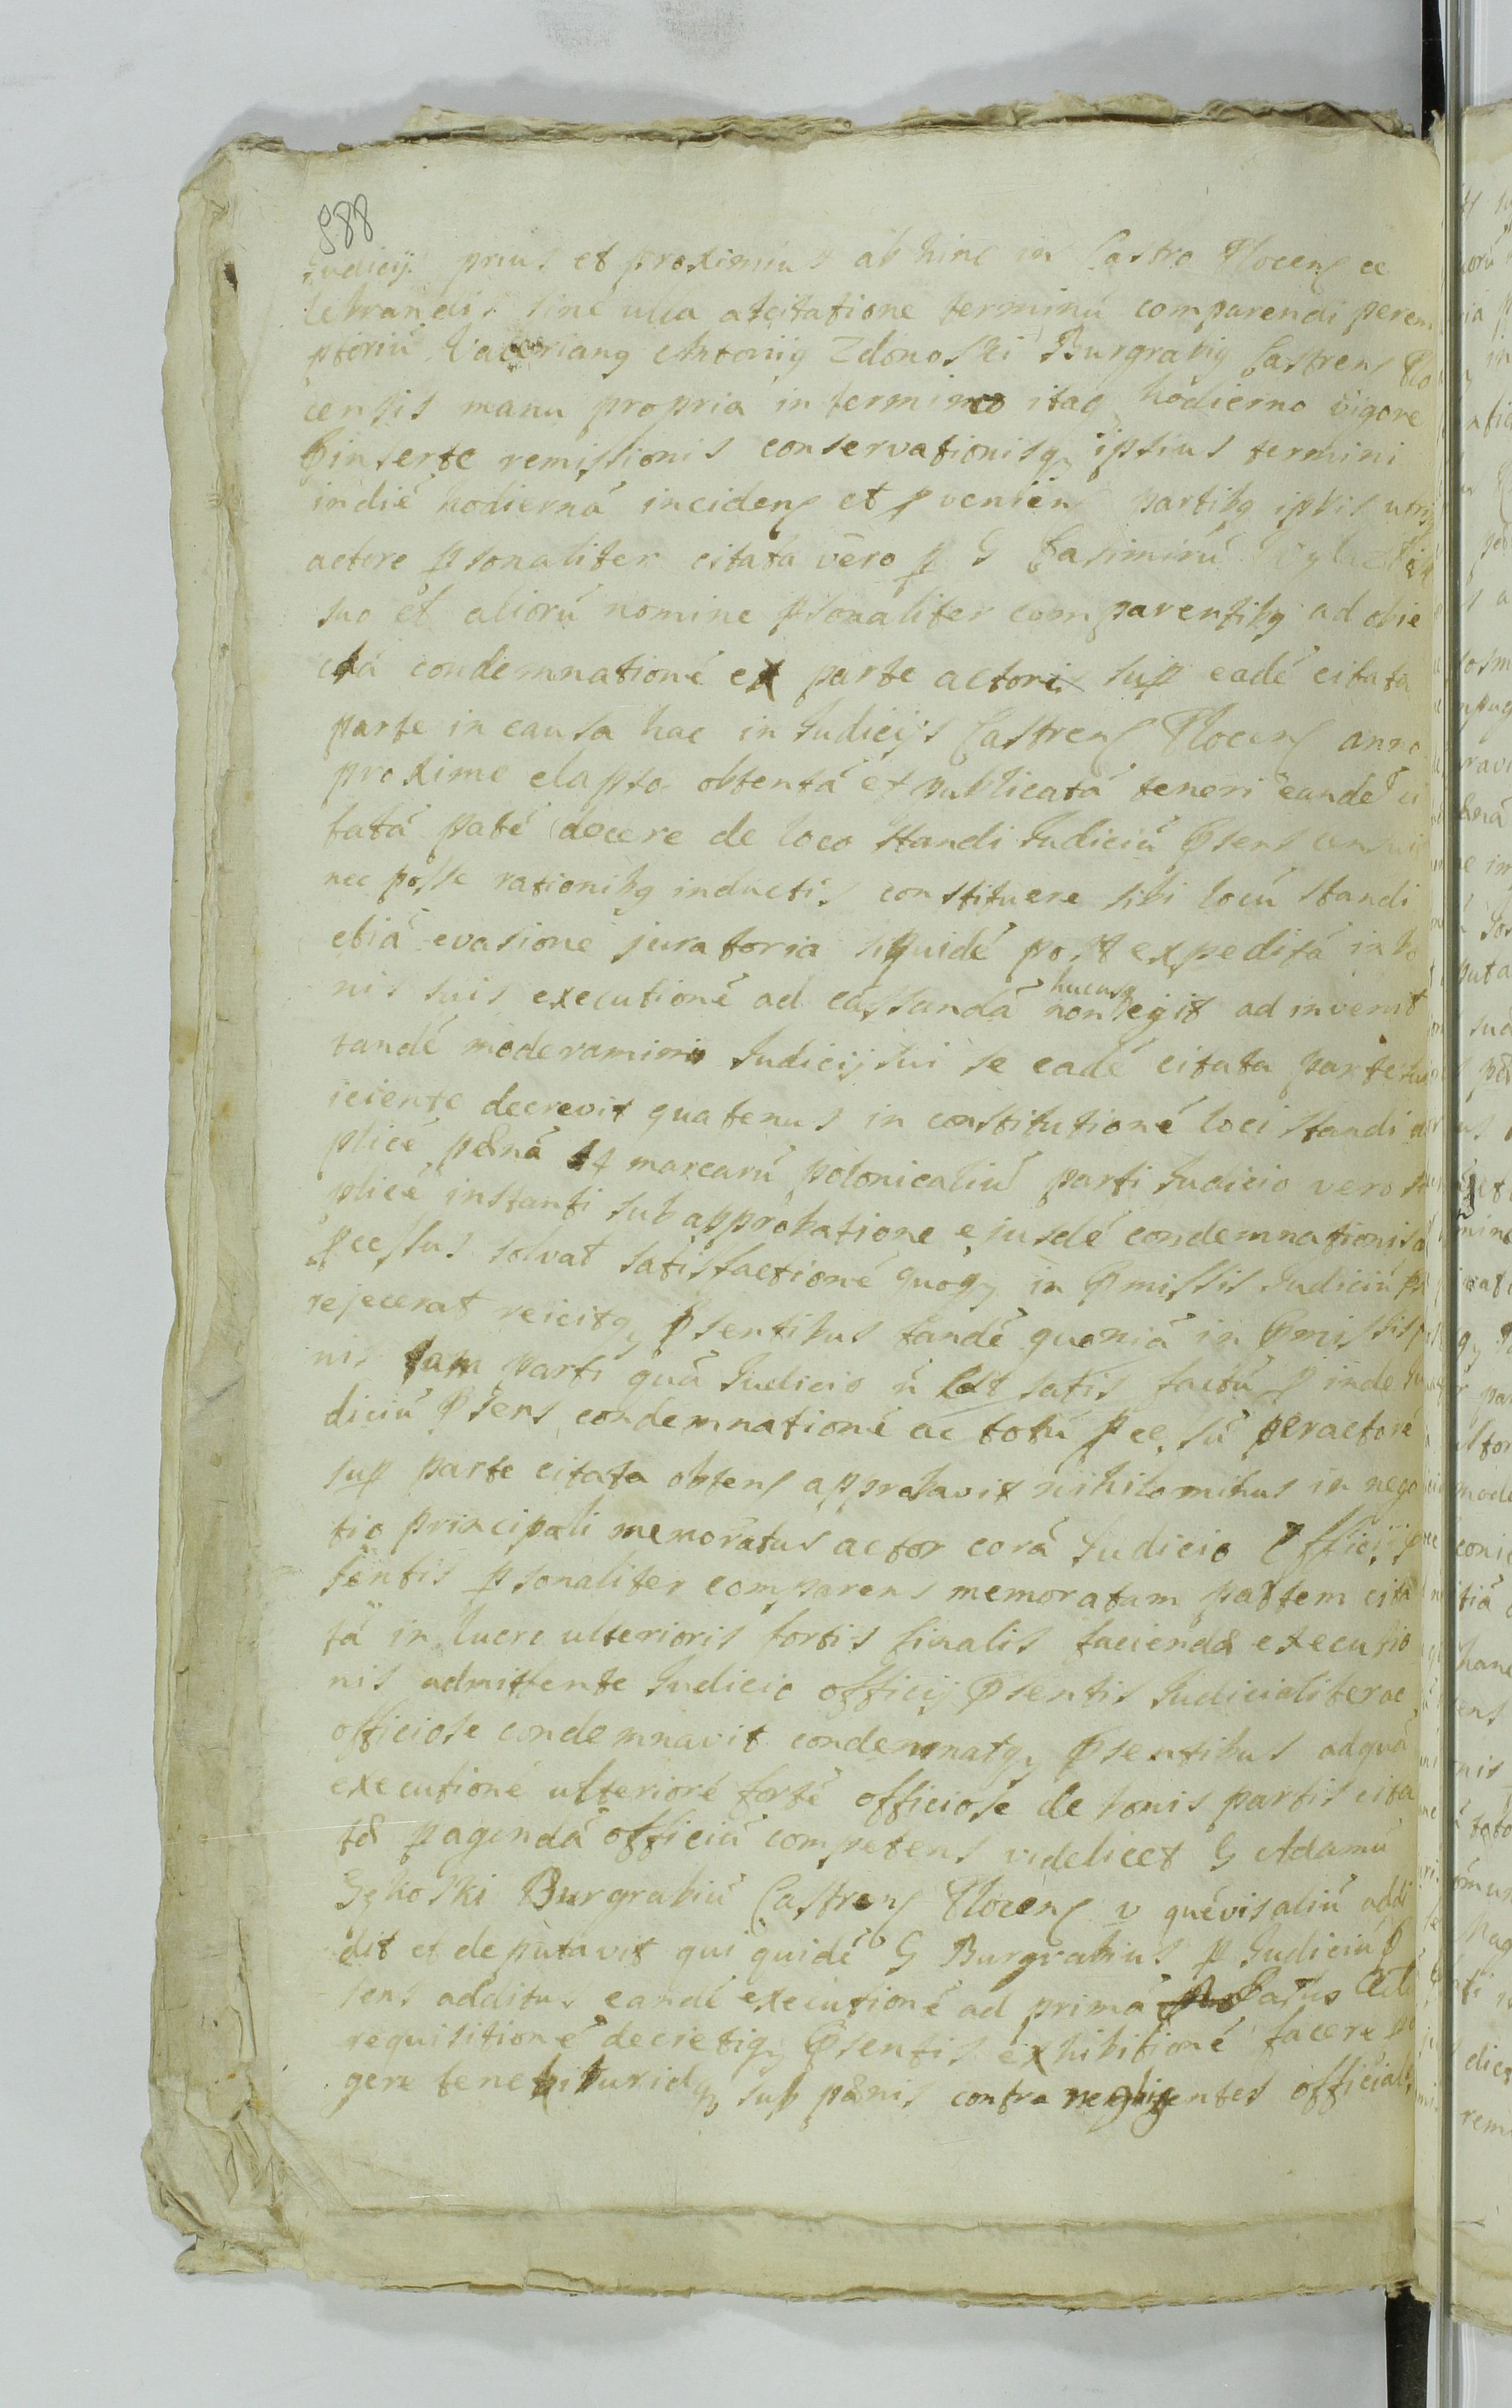 888
Judicijs prius et proximius ab hinc in Castro Plocen ce
lebrandis sine ulla atcitatione terminú comparendi perem
ptoriú Valerianq Antoniq Zdonoski Burgrabiq Castren Plo
censis manu propria in termino itaq hodierno vigore
pinserte remissionis conservationisq ipsius termini
indié hodierná inciden et pvenien partibq ipsis utrisq
actore psonaliter citata vero p G Casimirú
suo et aliorú nomine psonaliter comparentibq ad obie
ctá condemnationé ex parte actoris sup eadé citata
parte in causa hac in Judicijs Castren Plocen anno
proxime elapso obtentá et publicatá teneri eandé ci
tatá paté docere de loco standi Judiciú psens censuit
nec posse rationibq inductis constituere sibi locú standi
etiá evasione juratoria siquidé post expeditá in bo
nis suis executioné ad cassandá non hucusq egit ad invenit
tandé moderamini Judicij sui se eadé citata parte sub
iciente decrevit quatenus in constitutioné loci standi
plicé pœná 14 marcarú polonicaliú parti Judicio vero si
plicé instanti sub approbatione ejusdé condemnationis a
pcessus solvat satisfactioné quoq in pmissis Judiciú
rejecerat reicitq psentibus tandé quoniá in pmissis pæ
nis tam parti quá Judicio ń est satis factú p inde Ju
diciú psens condemnationé ac totú pcessú per actoré
sup parte citata obten approbavit nihilominus in nego
tio principali memoratus actor corá Judicio Officij p
sentis psonaliter comparens memoratam partem cita
tá in lucro ulterioris fortis finalis faciendæ executio
nis admittente Judicio officij psentis Judicialiter ac
officiose condemnavit condemnatq psentibus ad quá
executioné ulterioré forté officiose de bonis partis cita
tæ pagendá officiú competens videlicet G Adamú
Sękoski Burgrabiú Castren Plocen v quévis aliú addi
dit et deputavit qui quidé G Burgrabius p Judiciú p
sens additus eandé executioné ad primá partis
requisitioné decretiq psentis exhibitioné facere
gere tenebitur idq sub pænis contra negligentes officiales